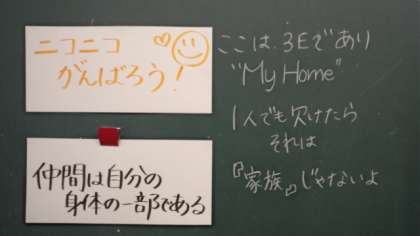 ニコニコ
がんばろう!
仲間は自分の
身体の一部である
ここは、3Eであり
"My Home"
1人でも欠けたら
それは
『家族』じゃないよ